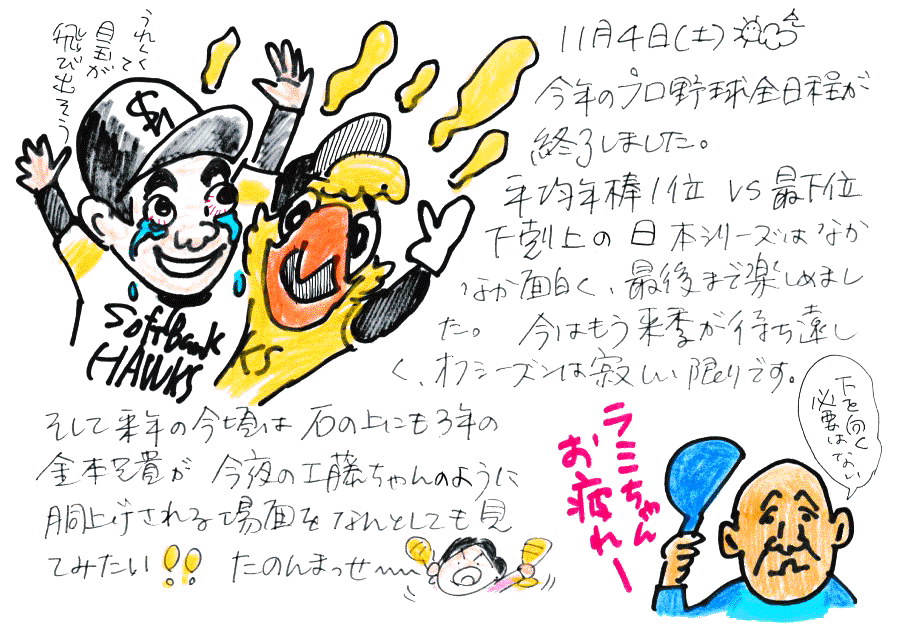 11月4日(土)
今年のプロ野球全日程が
終了しました。
平均年棒1位 VS 最下位
下剋上の日本シリーズはなか
なか面白く、最後まで楽しめまし
た。 今はもう来季が待ち遠し
く、オフシーズンは寂しい限りです。
そして来年の今頃は石の上にも3年の
金本兄貴が今夜の工藤ちゃんのように
胴上げされる場面をなんとしても見
てみたい!! たのんまっせ〜
うれしくて
目玉が
飛び出そう
SH
SoftBank
HAWKS
KS
下を向く
必要はない
ラミちゃん
お疲れー